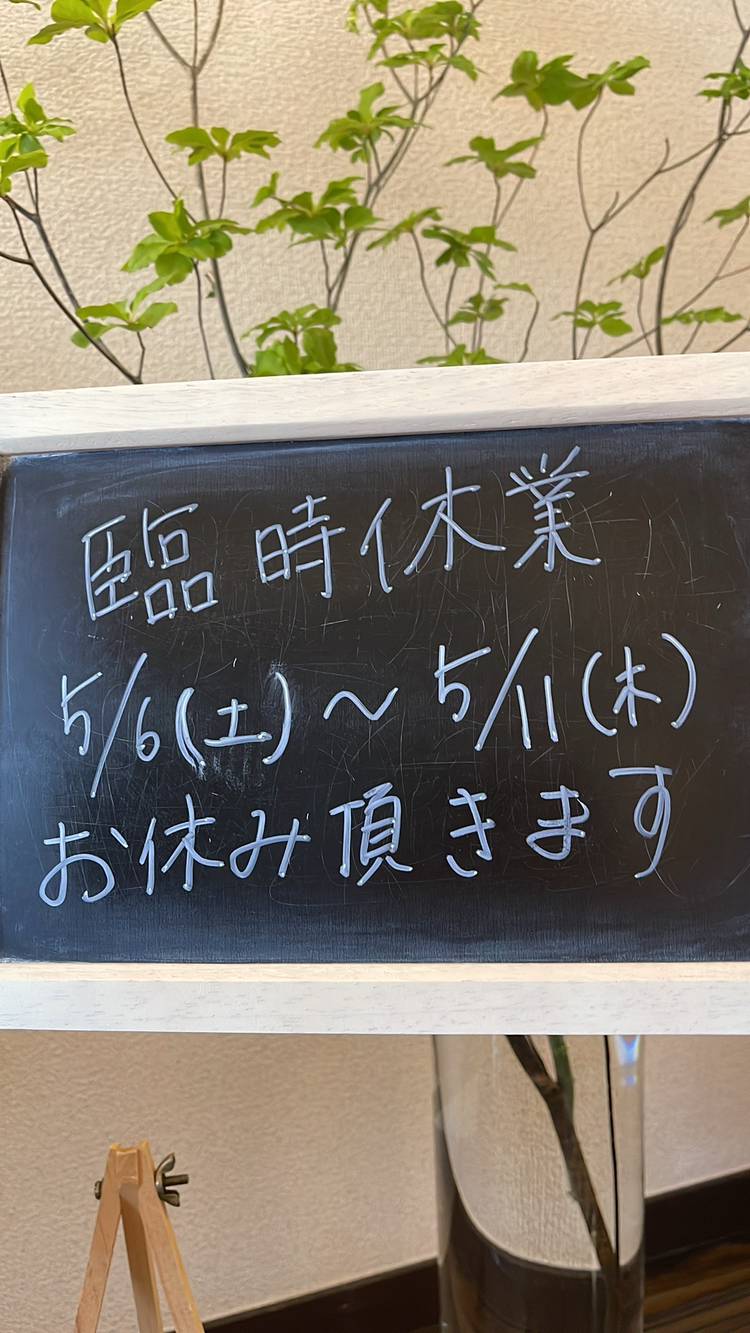 臨時休業
5/6(土)～5/11(木)
お休み頂きます